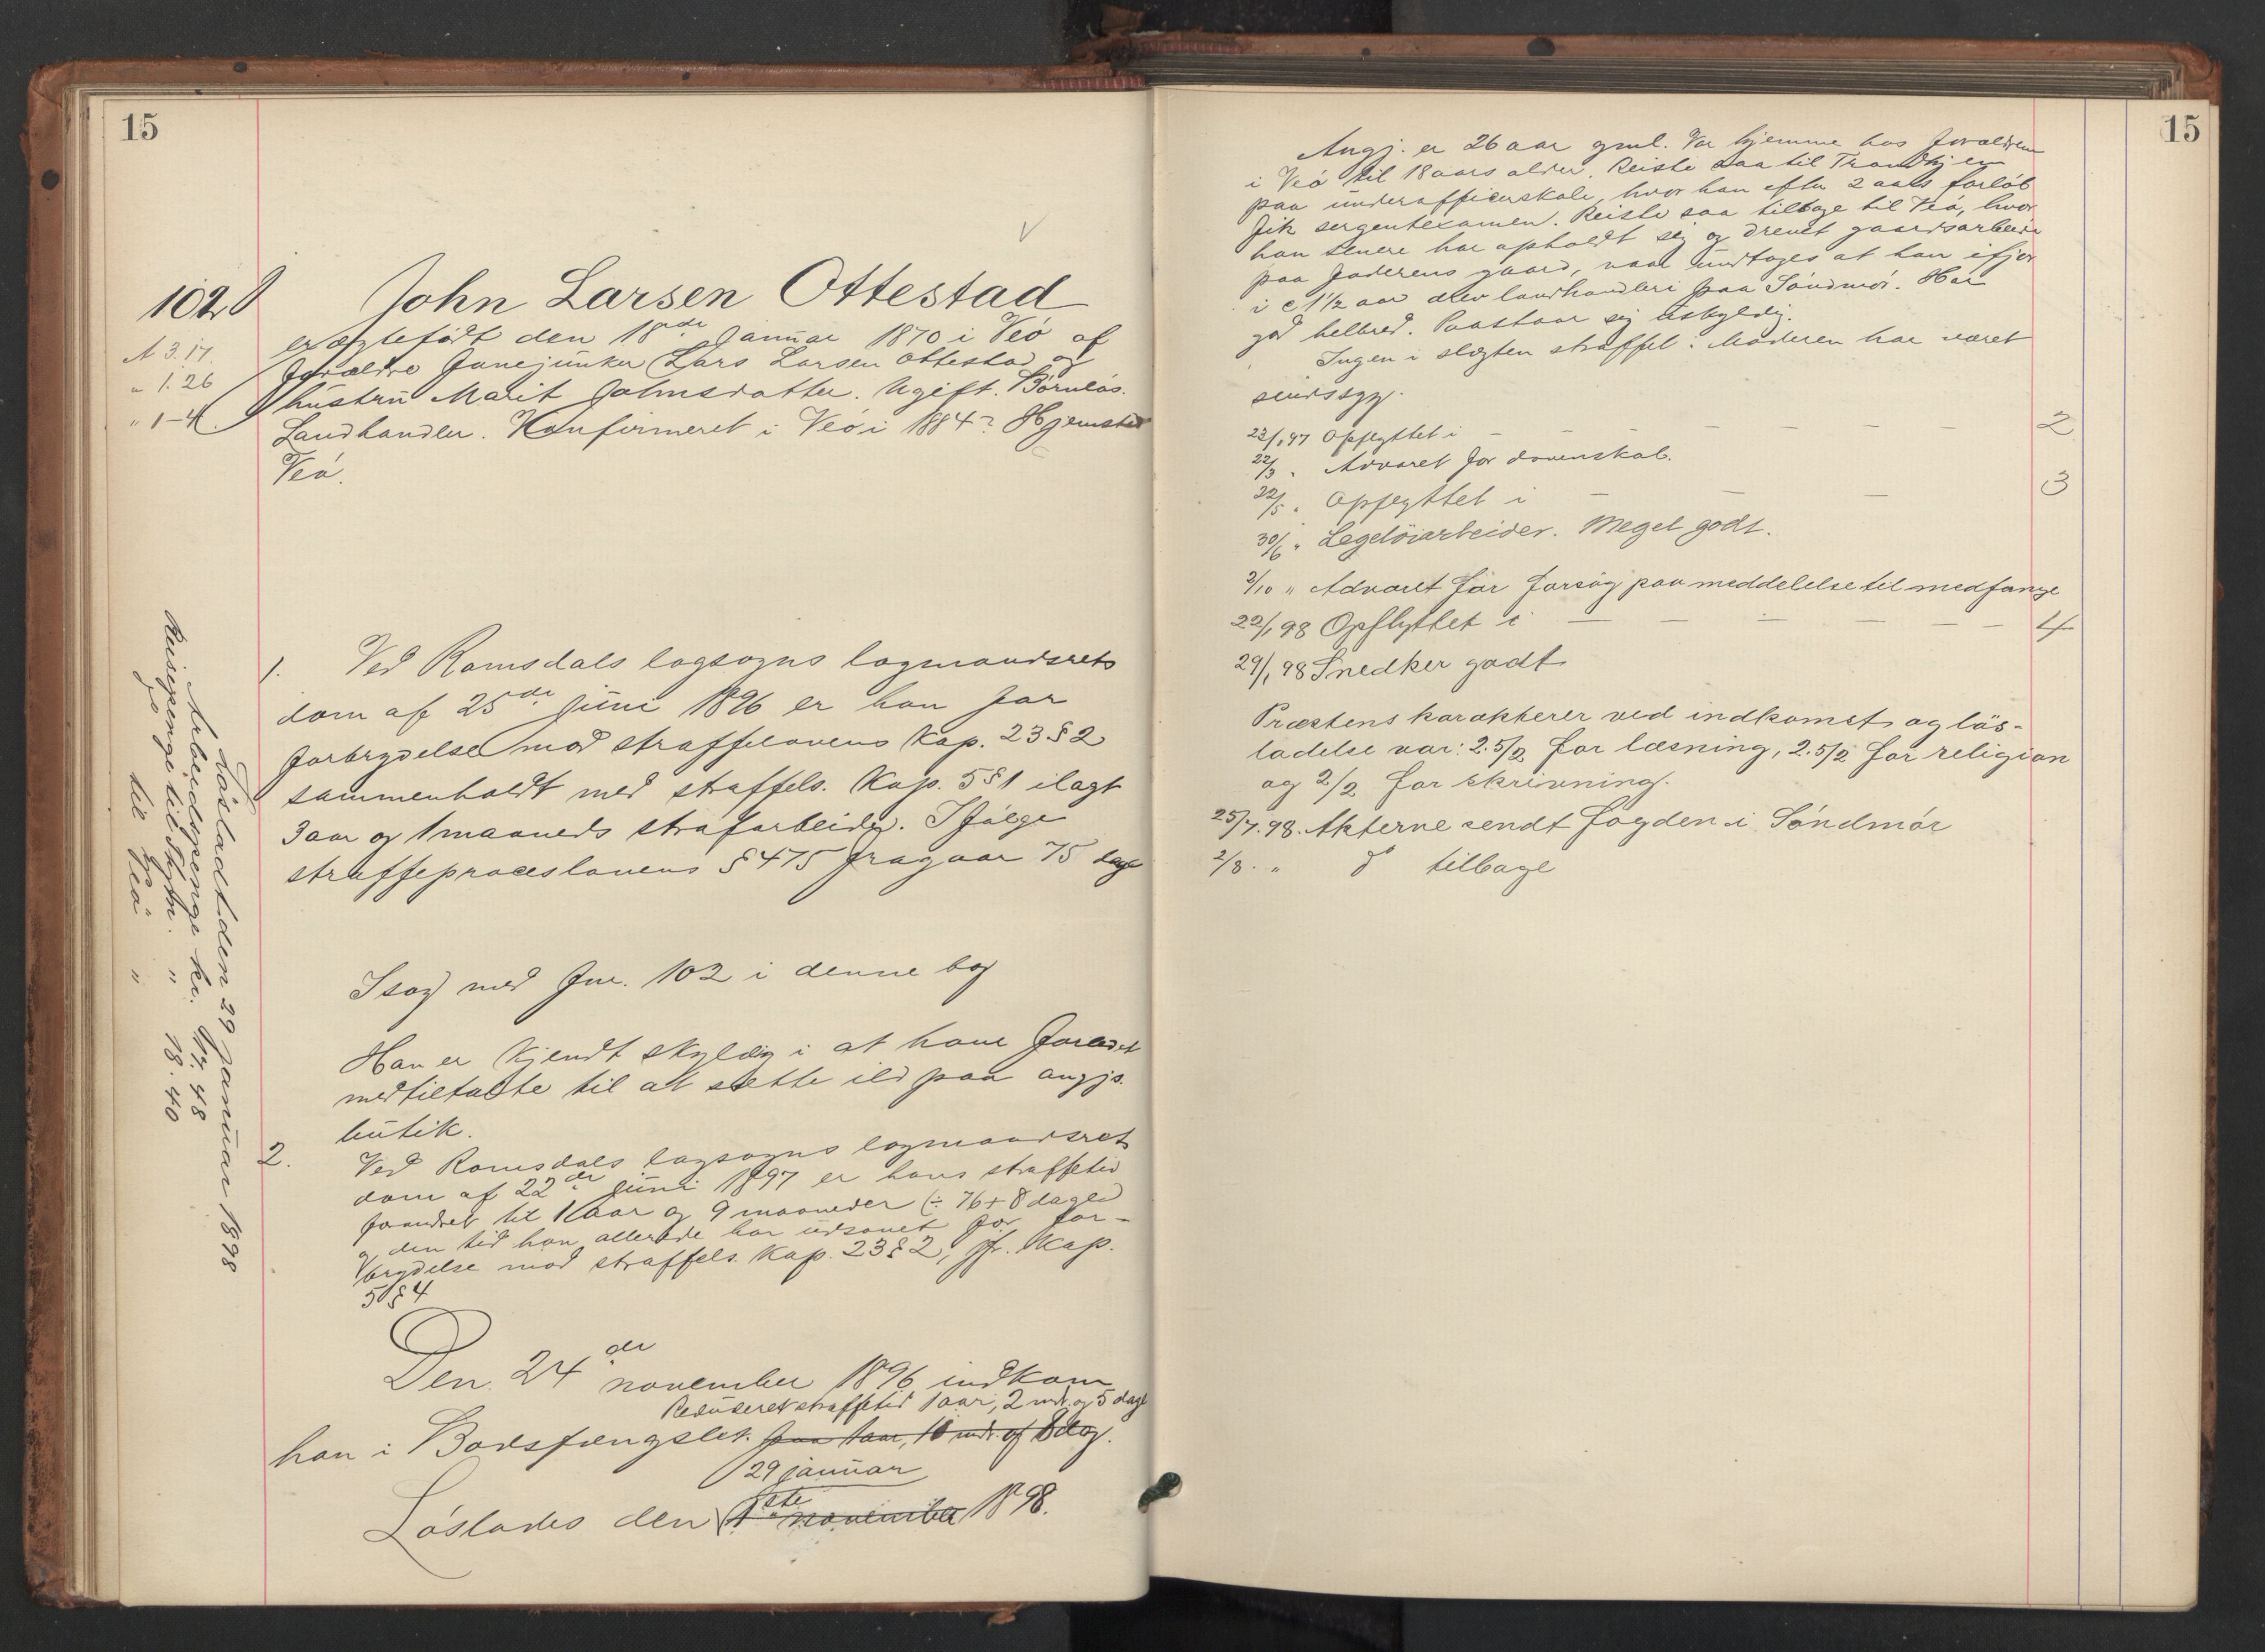 15
102
John Larsen Ottestad
A 3.17.
„ 1.26
„ 1-4.
er ægtefödt den 18de Januar 1870 i Veö af
forældre Fanejunker Lars Larsen Ottestad og
hustru Marit Johnsdatter. Ugift. Börnlös.
Landhandler. Konfirmeret i Veö i 1884? Hjemsted
Veö.
1. Ved Romsdals lagsogns lagmandsrets
dom af 25de juni 1896 er han for
forbrydelse mod straffelovens Kap. 23 § 2
sammenholdt med straffels. Kap. 5 § 1 ilagt
3 aar og 1 maaneds strafarbeide. Ifölge
straffeproceslovens § 475 fragaar 75 dage
I sag med Fne. 102 i denne bog
Han er kjendt skyldig i at have forledet
medtiltalte til at sætte ild paa angjs.
butik.
2. Ved Romsdals lagsogns lagmandsrets
dom af 22de juni 1897 er hans straffetid
forandret til 1 aar og 9 maaneder (÷ 76 + 8 dage)
og den tid han allerede har udsonet for for-
brydelse mod straffels. Kap. 23 § 2, jfr. Kap.
5 § 4
Den 24de november 1896 indkom
Reduceret straffetid 1 aar, 2 mdr. og 5 dage
han i Bodsfængslet. paa 1 aar, 10 mdr. og 8 dag.
29 januar
Löslades den 1ste november 1898.
Lösladt den 29 januar 1898
Arbeidspenge kr. 47. 48
Reisepenge til „ 18. 40
til Veö „
15
Angj. er 26 aar gml. Var hjemme hos forældrene
i Veö til 18 aars alder. Reiste saa til Trondhjem
paa underofficerskole, hvor han efter 2 aars forlöb
fik sergentexamen. Reiste saa tilbage til Veö, hvor
han senere har opholdt sig og drevet gaardsarbeide
paa faderens gaard, naar undtages at han ifjor
i c 1 1/2 aar drev landhandleri paa Söndmör. Har
god helbred. Paastaar sig uskyldig.
Ingen i slægten straffet. Moderen har været
sindssyg.
22/1 97 Opflyttet i – – – – – – 2
22/3 „ Advaret for dovenskab.
22/5 „ Opflyttet i – – – 3
30/6 „ Legetöiarbeider. Meget godt.
2/10 „ Advaret for forsög paa meddelelse til medfange
22/1 98 Opflyttet i – – – – – – 4
29/1 98 Snedker godt
Præstens karakterer ved indkomst og lös-
ladelse var: 2.5/2 for læsning, 2.5/2 for religion
og 2/2 for skrivning.
25/7.98. Akterne sendt Fogden i Söndmör
2/8. „ do tilbage